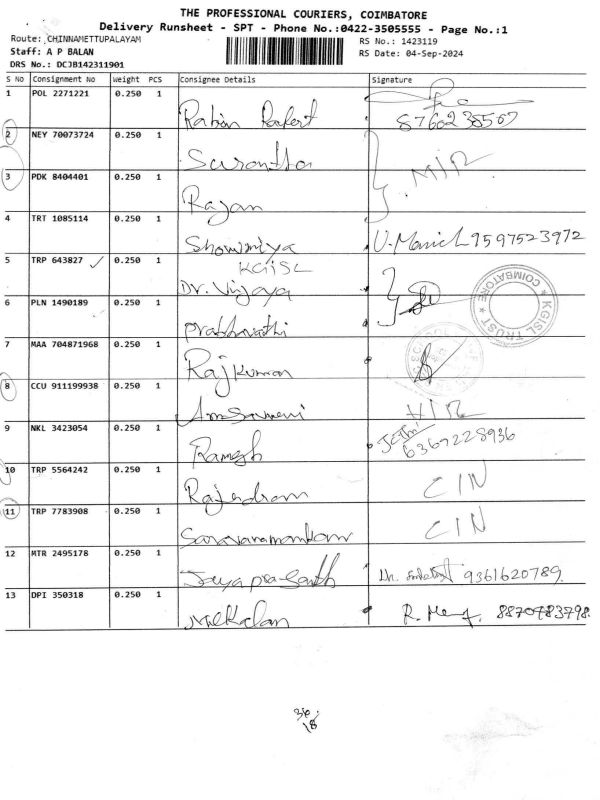 THE PROFESSIONAL COURIERS, COIMBATORE
Delivery Runsheet - SPT - Phone No.:0422-3505555 - Page No.:1
Route: CHINNAMETTUPALAYAM RS No.: 1423119
Staff: A P BALAN RS Date: 04-Sep-2024
DRS No.: DCJB142311901
S No Consignment No Weight PCS Consignee Details Signature
1 POL 2271221 0.250 1
8760235567
2 NEY 70073724 0.250 1
3 PDK 8404401 0.250 1
Rajan
4 TRT 1085114 0.250 1
Showmiya 9597523972
5 TRP 643827 ✓ 0.250 1 KGISL
Dr. Vijaya
KGISL TRUST * COIMBATORE *
6 PLN 1490189 0.250 1
Prabhavathi
7 MAA 704871968 0.250 1
Rajkumar
8 CCU 911199938 0.250 1
9 NKL 3423054 0.250 1
Ramesh 6369228936
10 TRP 5564242 0.250 1
Rajendram CIN
11 TRP 7783908 0.250 1
CIN
12 MTR 2495178 0.250 1
Jayaprasanth 9361620789
13 DPI 350318 0.250 1
R. 8870783798
36
18